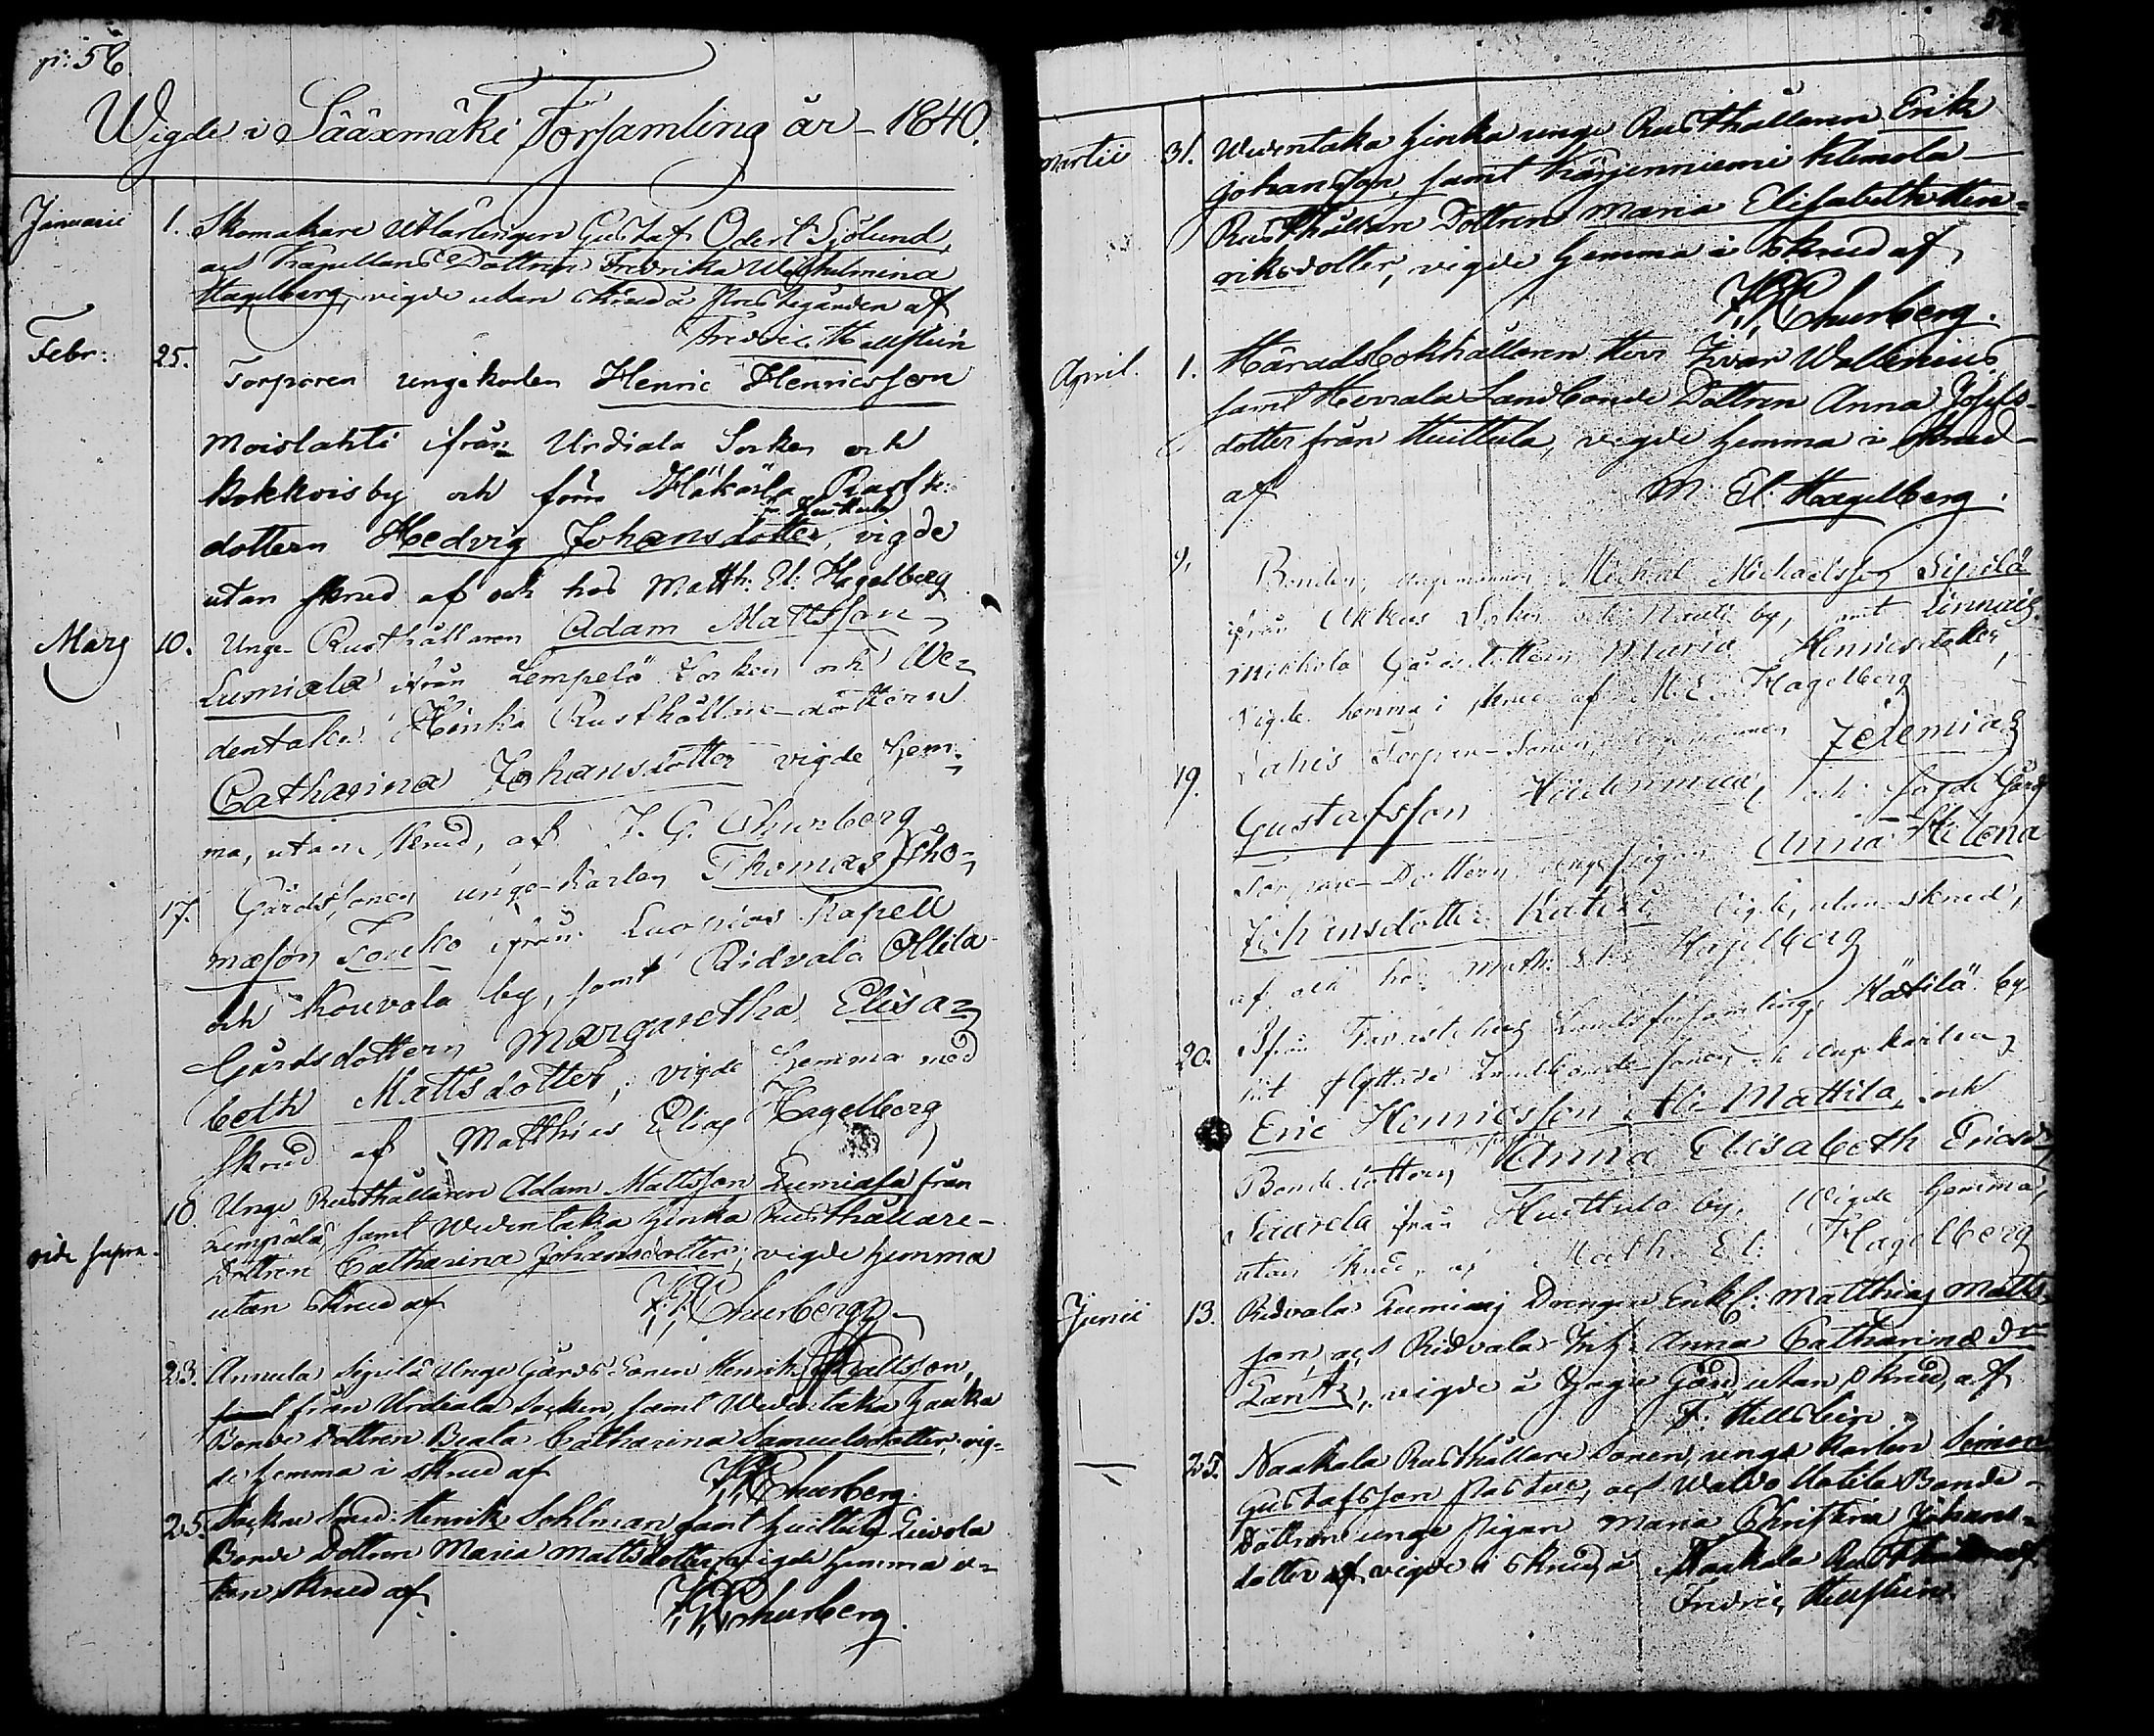 p: 56.
Wigde i Sääxmäki Församling år 1840.
Januarii 1. Skomakare Utlärlingen Gustaf Odert Sjölund,
och Kapellans Dottren Fredrika Wilhelmina
Hagelberg, vigde utan skrud å Prestegården af
Fredric Hellstein
Febr: 25. Torparen ungekarlen Henric Henricsson
Moislahti ifrån Urdiala Socken och
Kokkois by och före Häkärla
dottern Hedvig Johansdotter, vigde
utan skrud af och hos Matth: El: Hagelberg
Mars 10. Unge Rusthållaren Adam Mattsson
Lumiala ifrån Lempelä Socken och We-
dentaka Henka Rusthållare-dottern
Catharina Johansdotter vigde hem-
ma, utan skrud, af F. G. Churberg
17. Gårdssonen unge-karlen Thomas Tho-
masson ifrån Luopiois Kapell
och Kouvala by, samt Ridvala Ollila
Gårdsdottern Margaretha Elisa-
beth Mattsdotter, vigde hemma med
skrud af Matthias Elias Hagelberg
10. Unge Rusthållaren Adam Mattsson Lumiala från
vide supra. Lempiälä, samt Wedentaka Henka Rusthållare-
Dottren Catharina Johansdotter; vigde hemma
utan skrud af Churberg
23. Annula Sipilä Unge Gårds Sonen Henrik Mattsson,
från Urdiala Socken, samt Wedentaka
Bonde Dottren Beata Catharina Samuelsdotter, vig-
de hemma i skrud af Churberg.
25. Socken Smed: Henrik Sohlman, samt Huittula
Bonde Dottren Maria Mattsdotter vigde hemma u-
tan skrud af Churberg.
Martii 31. Wedentaka Henka unge Rusthållaren Erik
Johansson, samt Kärjenniemi Klemola
Rusthållare Dottren Maria Elisabeth Hen-
riksdotter, vigde hemma i skrud af
Churberg.
April. 1. Häradsbokhållaren Herr Ivar Wallenius,
samt Hevrala Landbonde Dottren Anna Josefs-
dotter från Huittula, vigde hemma i skrud
af M. El: Hagelberg.
9. Bonden, ungemannen Michel Michaelsson Sipilä
ifrån Akkas Socken och by, samt
Mikkola Gårdsdottern Maria Henricsdotter,
Vigde hemma i skrud af M. E. Hagelberg
19. Lahis Torpare-Sonen Jeremias
Gustafsson och
Torpare-Dottern Anna Helena
Johansdotter Vigde, utan skrud,
af och hos Math: Elias Hagelberg
20. Ifrån Tavastehus Landsförsamling, Kätilä by
hit flyttade Landbonde-sonen ungekarlen
Eric Henricsson Ali-Mattila, och
Bondedottern Anna Elisabeth Ericsd:r
Saarela ifrån Huittula by, Vigde hemma,
utan skrud, af Math. El: Hagelberg
Junii 13. Ridvala Drengen Enkl: Matthias Matts-
son, och Ridvala Anna Catharina d:r
vigde å Gård utan skrud, af
F. Hellstein.
25. Naakala Rusthållare Sonen, unge karlen Simon
Gustafsson och Bonde-
Dottren unge pigan Maria Christina Johans-
dotter vigde i skrud, å Naakala af
Fredric Hellstein.